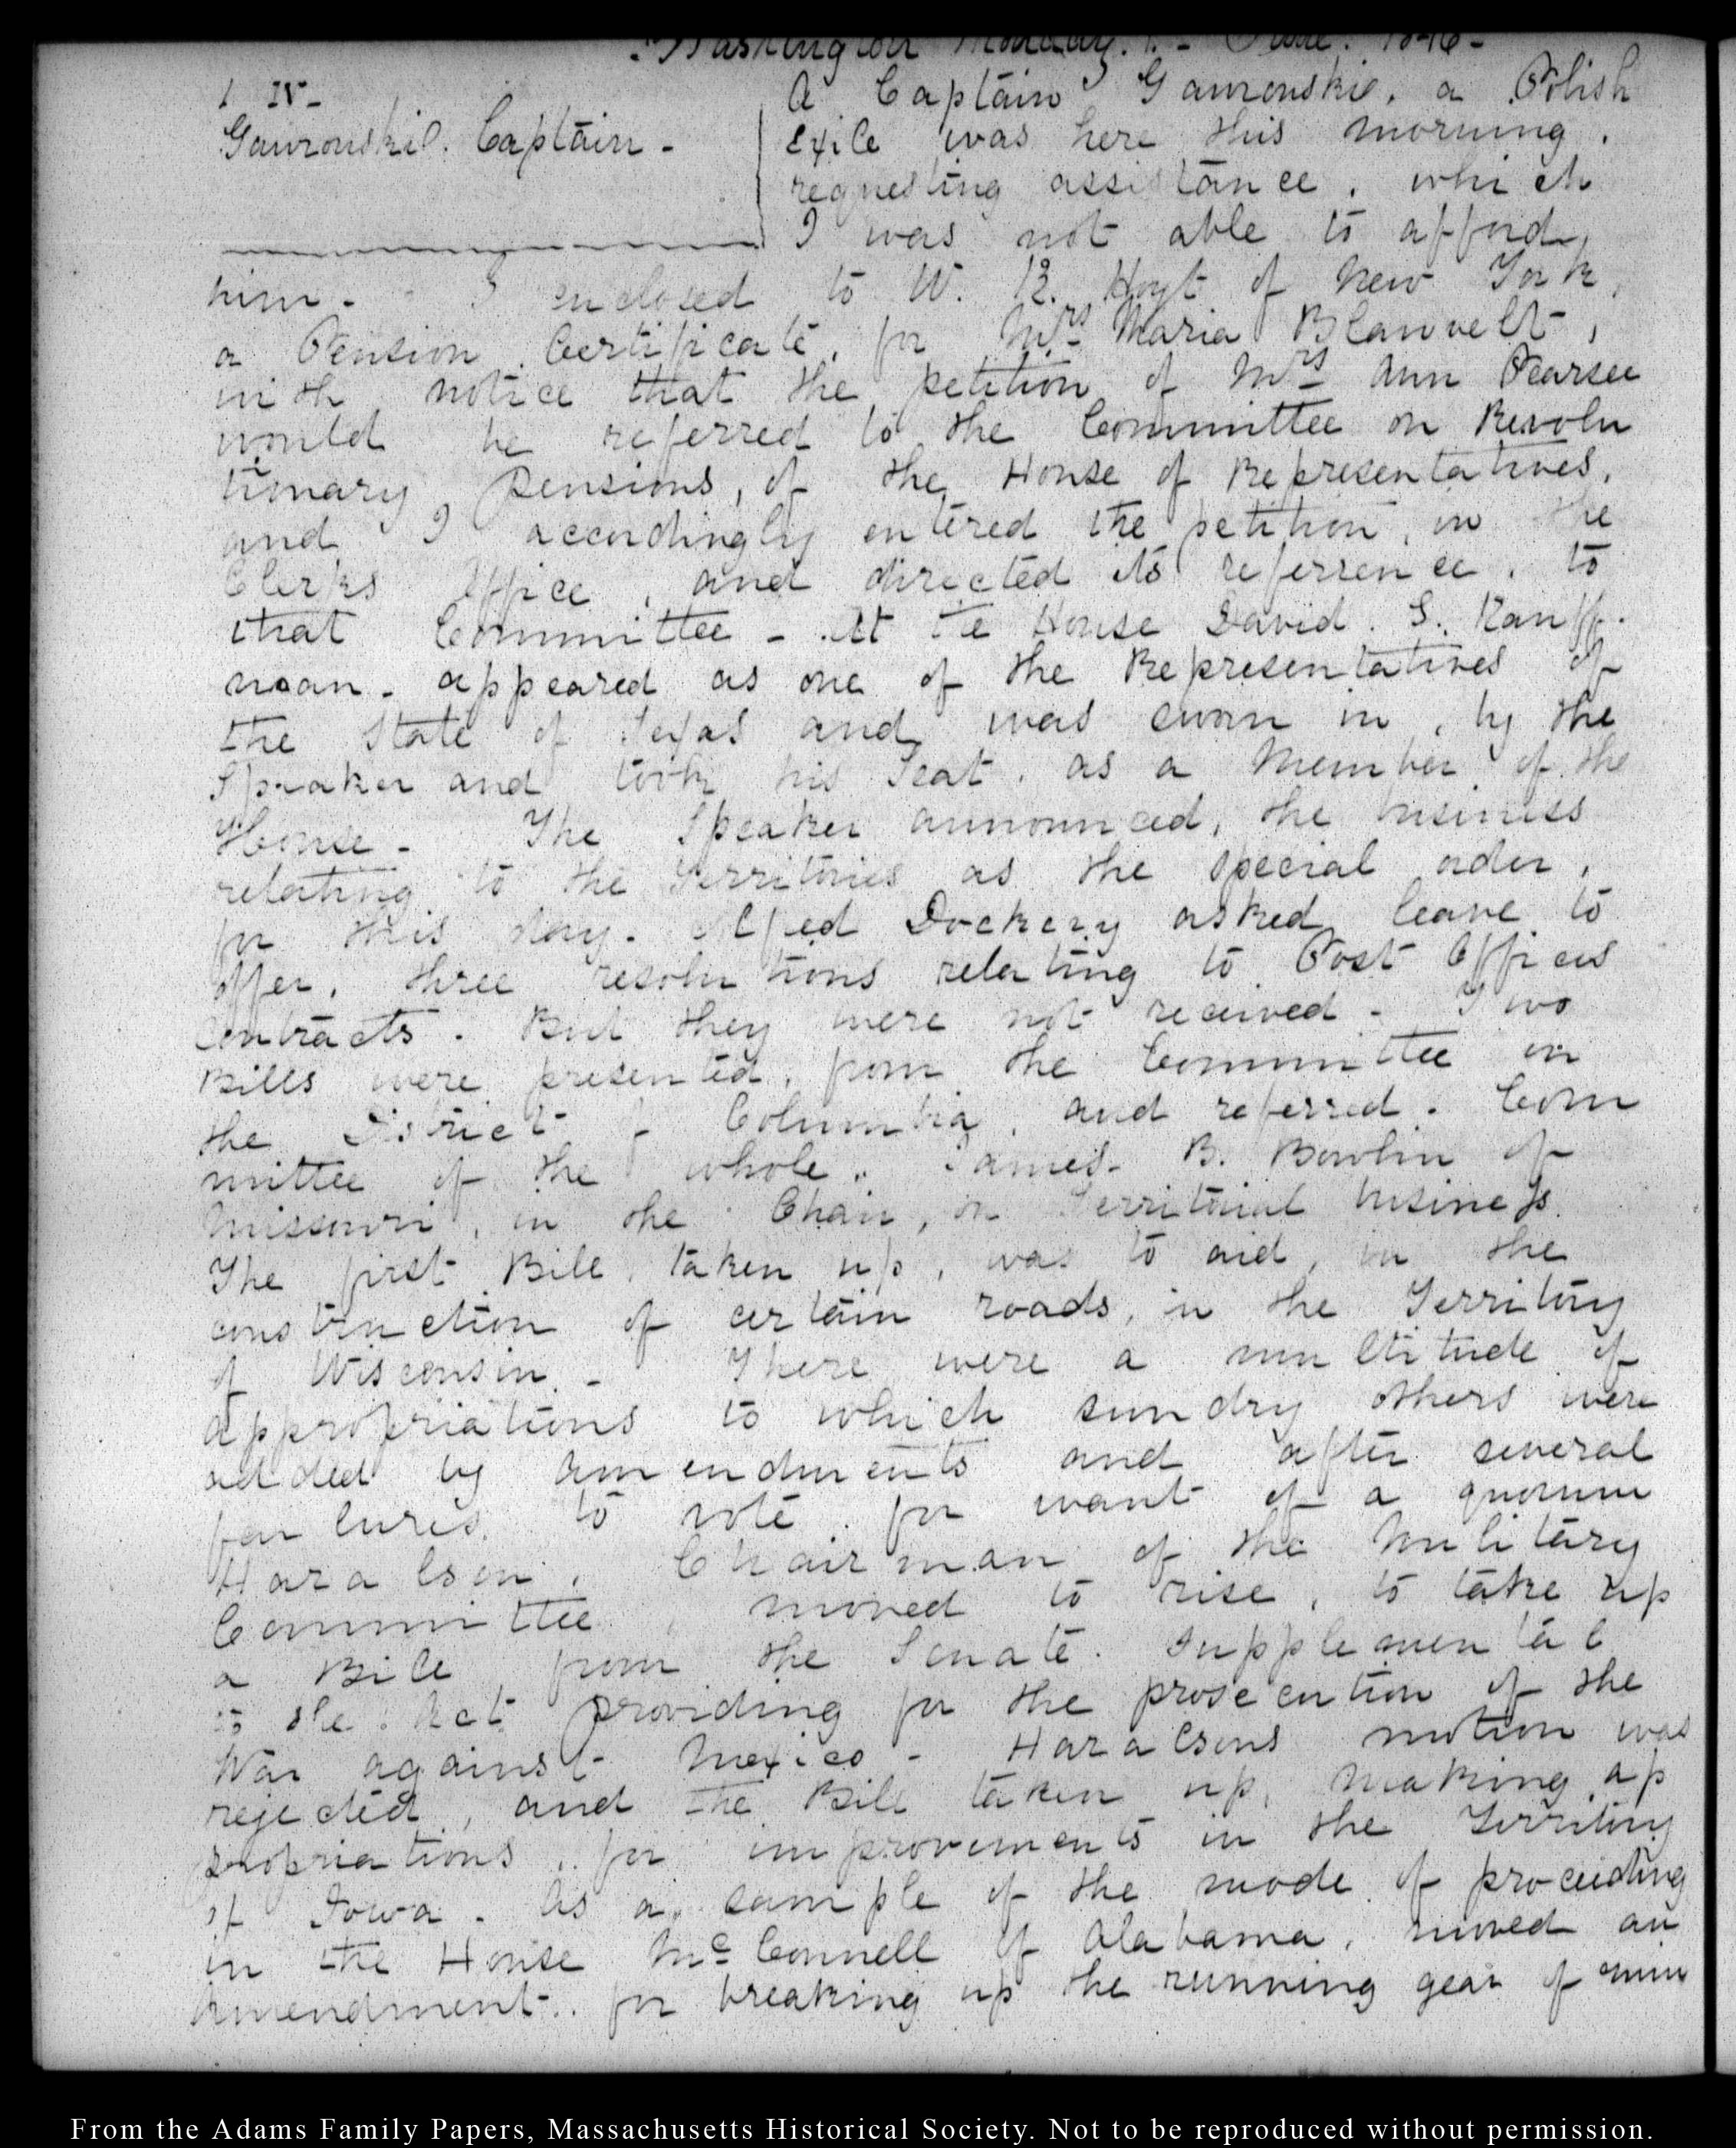 Washington Monday. 1. - June. 1846 -
1 IV -
Gawronskie. Captain -
A Captain Gawronskie, a Polish
exile was here this morning.
requesting assistance, which
I was not able to afford,
him - I enclosed to W. B. Hoyt of New York,
a Pension Certificate, for Mrs Maria Blauvelt,
with notice that the petition of Mrs Ann Pearsee
would be referred to the Committee on Revolu
tionary pensions, of the House of Representatives,
and I accordingly entered the petition, in the
Clerks Office, and directed its referrence, to
that Committee - At the House David. S. Kauff-
man - appeared as one of the Representatives of
the State of Texas and was sworn in, by the
Speaker and took his Seat, as a Member of the
House - The Speaker announced, the business
relating to the Territories as the special order,
for this day - Alfred Dockery asked leave to
offer, three resolutions relating to Post Offices
contracts. But they were not received - Two
Bills were presented, from the Committee on
the District of Columbia, and referred. Com
mittee of the whole. James - B. Bowlin of
Missouri, in the Chair, on Territorial business.
The first Bill, taken up, was to aid, in the
construction of certain roads, in the Territory
of Wisconsin - There were a multitude of
appropriations to which sundry others were
added by amendments and after several
failures, to vote, for want of a quorum
Haralson, Chairman of the Military
Committee, moved to rise, to take up
a Bill from the Senate. Supplemental
to the Act providing for the prosecution of the
War against Mexico - Haralsons motion was
rejected, and the Bill taken up, making ap
propriations, for improvements in the Territory
of Iowa. As a sample of the mode of proceeding
in the House McConnell of Alabama, moved an
amendment - for breaking up the running gear of
From the Adams Family Papers, Massachusetts Historical Society. Not to be reproduced without permission.